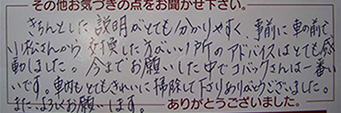 その他お気づきの点をお聞かせ下さい。
きちんとした説明がとても分かりやすく、事前に車の前で
小松さんから交換した方がいい所のアドバイスはとても感
動しました。今までお願いした中でコバックさんは一番い
いです。車内もとてもきれいに掃除して下さりありがとうございました。
また、よろしくお願いします。
ありがとうございました。